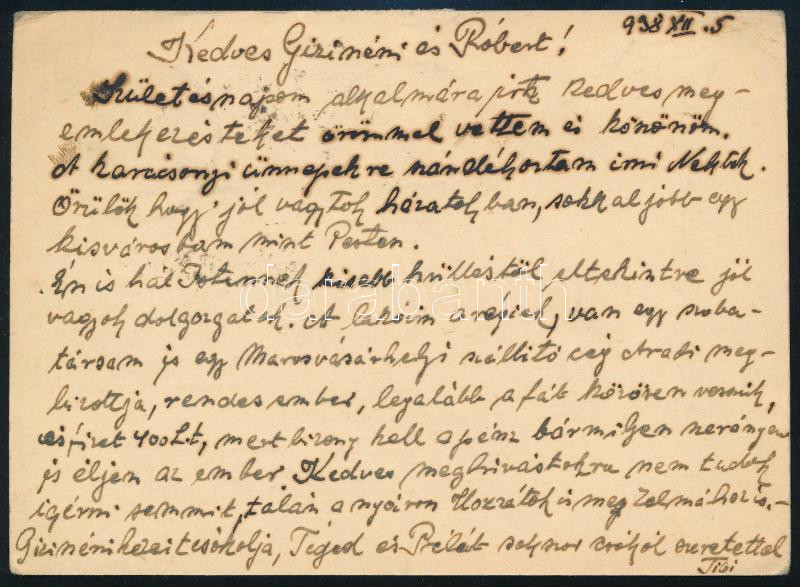 938 XII. 5
Kedves Gizinéni és Róbert!
Születésnapom alkalmára írt kedves meg-
emlékezésteket örömmel vettem és köszönöm.
A karácsonyi ünnepekre szándékoztam írni Nektek.
Örülök hogy jól vagytok házatokban, sokkal jobb egy
kisvárosban mint Pesten.
Én is hál Istennek kisebb hüléstől eltekintve jól
vagyok dolgozgatok. A lakóim a régiek, van egy szoba-
társam is egy Marosvásárhelyi szállító cég Aradi meg-
bizottja, rendes ember, legalább a fát közösen vesszük,
és fizet 400 Lt, mert bizony kell a pénz bármilyen szerényen
is éljen az ember Kedves meghivástokra nem tudok
igérni semmit, talán a nyáron Hozzátok is meg Zelmához is.-
Gizinéni kezeit csókolja, Téged és Bélát sokszor csókol szeretettel
Tibi
darabanth